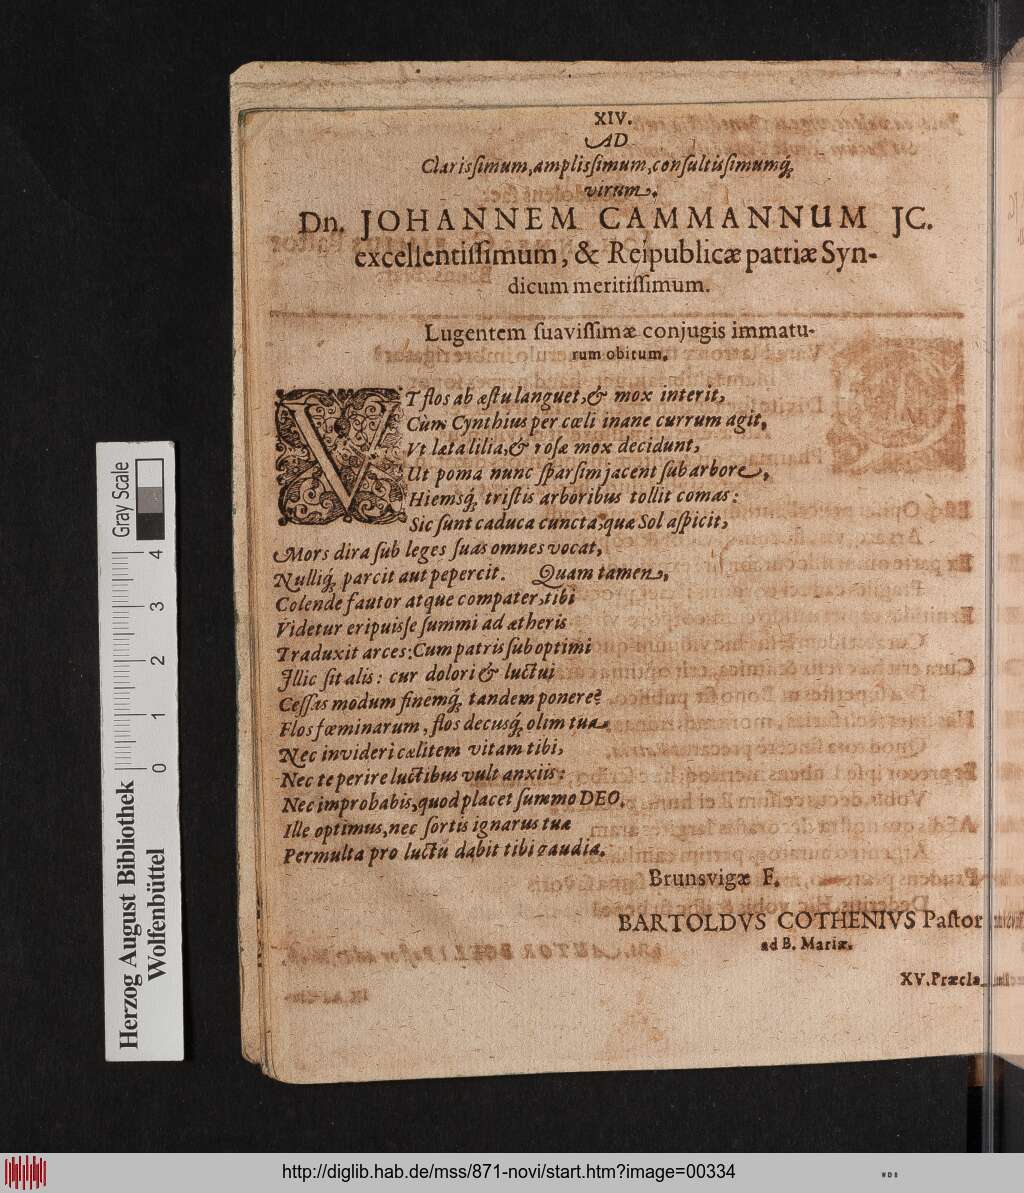 XIV.
AD
Clarissimum, amplissimum, consultissimumq́;
virum.
Dn. JOHANNEM CAMMANNUM JC.
excellentissimum, & Reipublicæ patriæ Syn-
dicum meritissimum.
Lugentem suavissimæ conjugis immatu-
rum obitum.
VT flos ab æstu languet, & mox interit,
Cùm Cynthius per cœli inane currum agit,
Vt læta lilia, & rosæ mox decidunt,
Ut poma nunc sparsim jacent sub arbore,
Hiemsq́; tristis arboribus tollit comas:
Sic sunt caduca cuncta, quæ Sol aspicit,
Mors dira sub leges suas omnes vocat,
Nulliq́; parcit aut pepercit. Quam tamen,
Colende fautor atque compater, tibi
Videtur eripuisse summi ad ætheris
Traduxit arces: Cum patris sub optimi
Illic sit alis: cur dolori & luctui
Cessas modum finemq́; tandem ponere?
Flos fœminarum, flos decusq́; olim tua
Nec invideri cælitem vitam tibi,
Nec te perire luctibus vult anxiis:
Nec improbabis, quod placet summo DEO.
Ille optimus, nec sortis ignarus tuæ
Permulta pro luctu dabit tibi gaudia.
Brunsvigæ F.
BARTOLDVS COTHENIVS Pastor
ad B. Mariæ.
XV. Præcla-
Gray Scale
4
3
2
1
0
Herzog August Bibliothek
Wolfenbüttel
http://diglib.hab.de/mss/871-novi/start.htm?image=00334